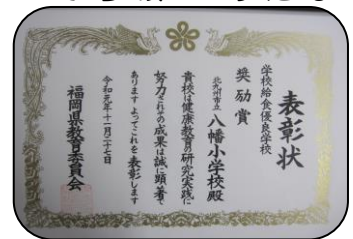 表彰状
学校給食優良学校
奨励賞
北九州市立 八幡小学校殿
貴校は健康教育の研究実践に
努力されその成果は誠に顕著で
あります よってこれを表彰します
令和元年十一月二十七日
福岡県教育委員会